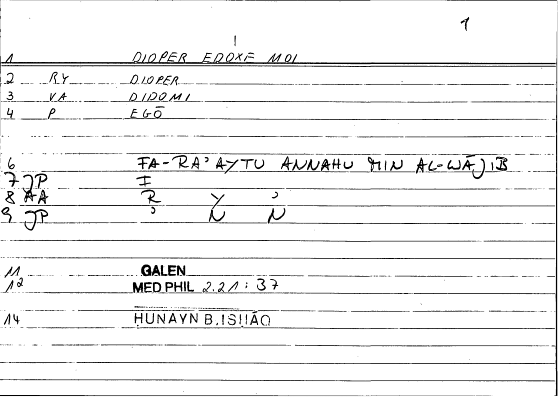 1
1 DIOPER EDOXE MOI
2 RY DIOPER
3 VA DIDOMI
4 P EGŌ
6 FA-RA'AYTU ANNAHU MIN AL-WĀJIB
7 JP I
8 AA R Y '
9 JP ' N N
11 GALEN
12 MED PHIL 2.21: 37
14 HUNAYN B.ISHĀQ